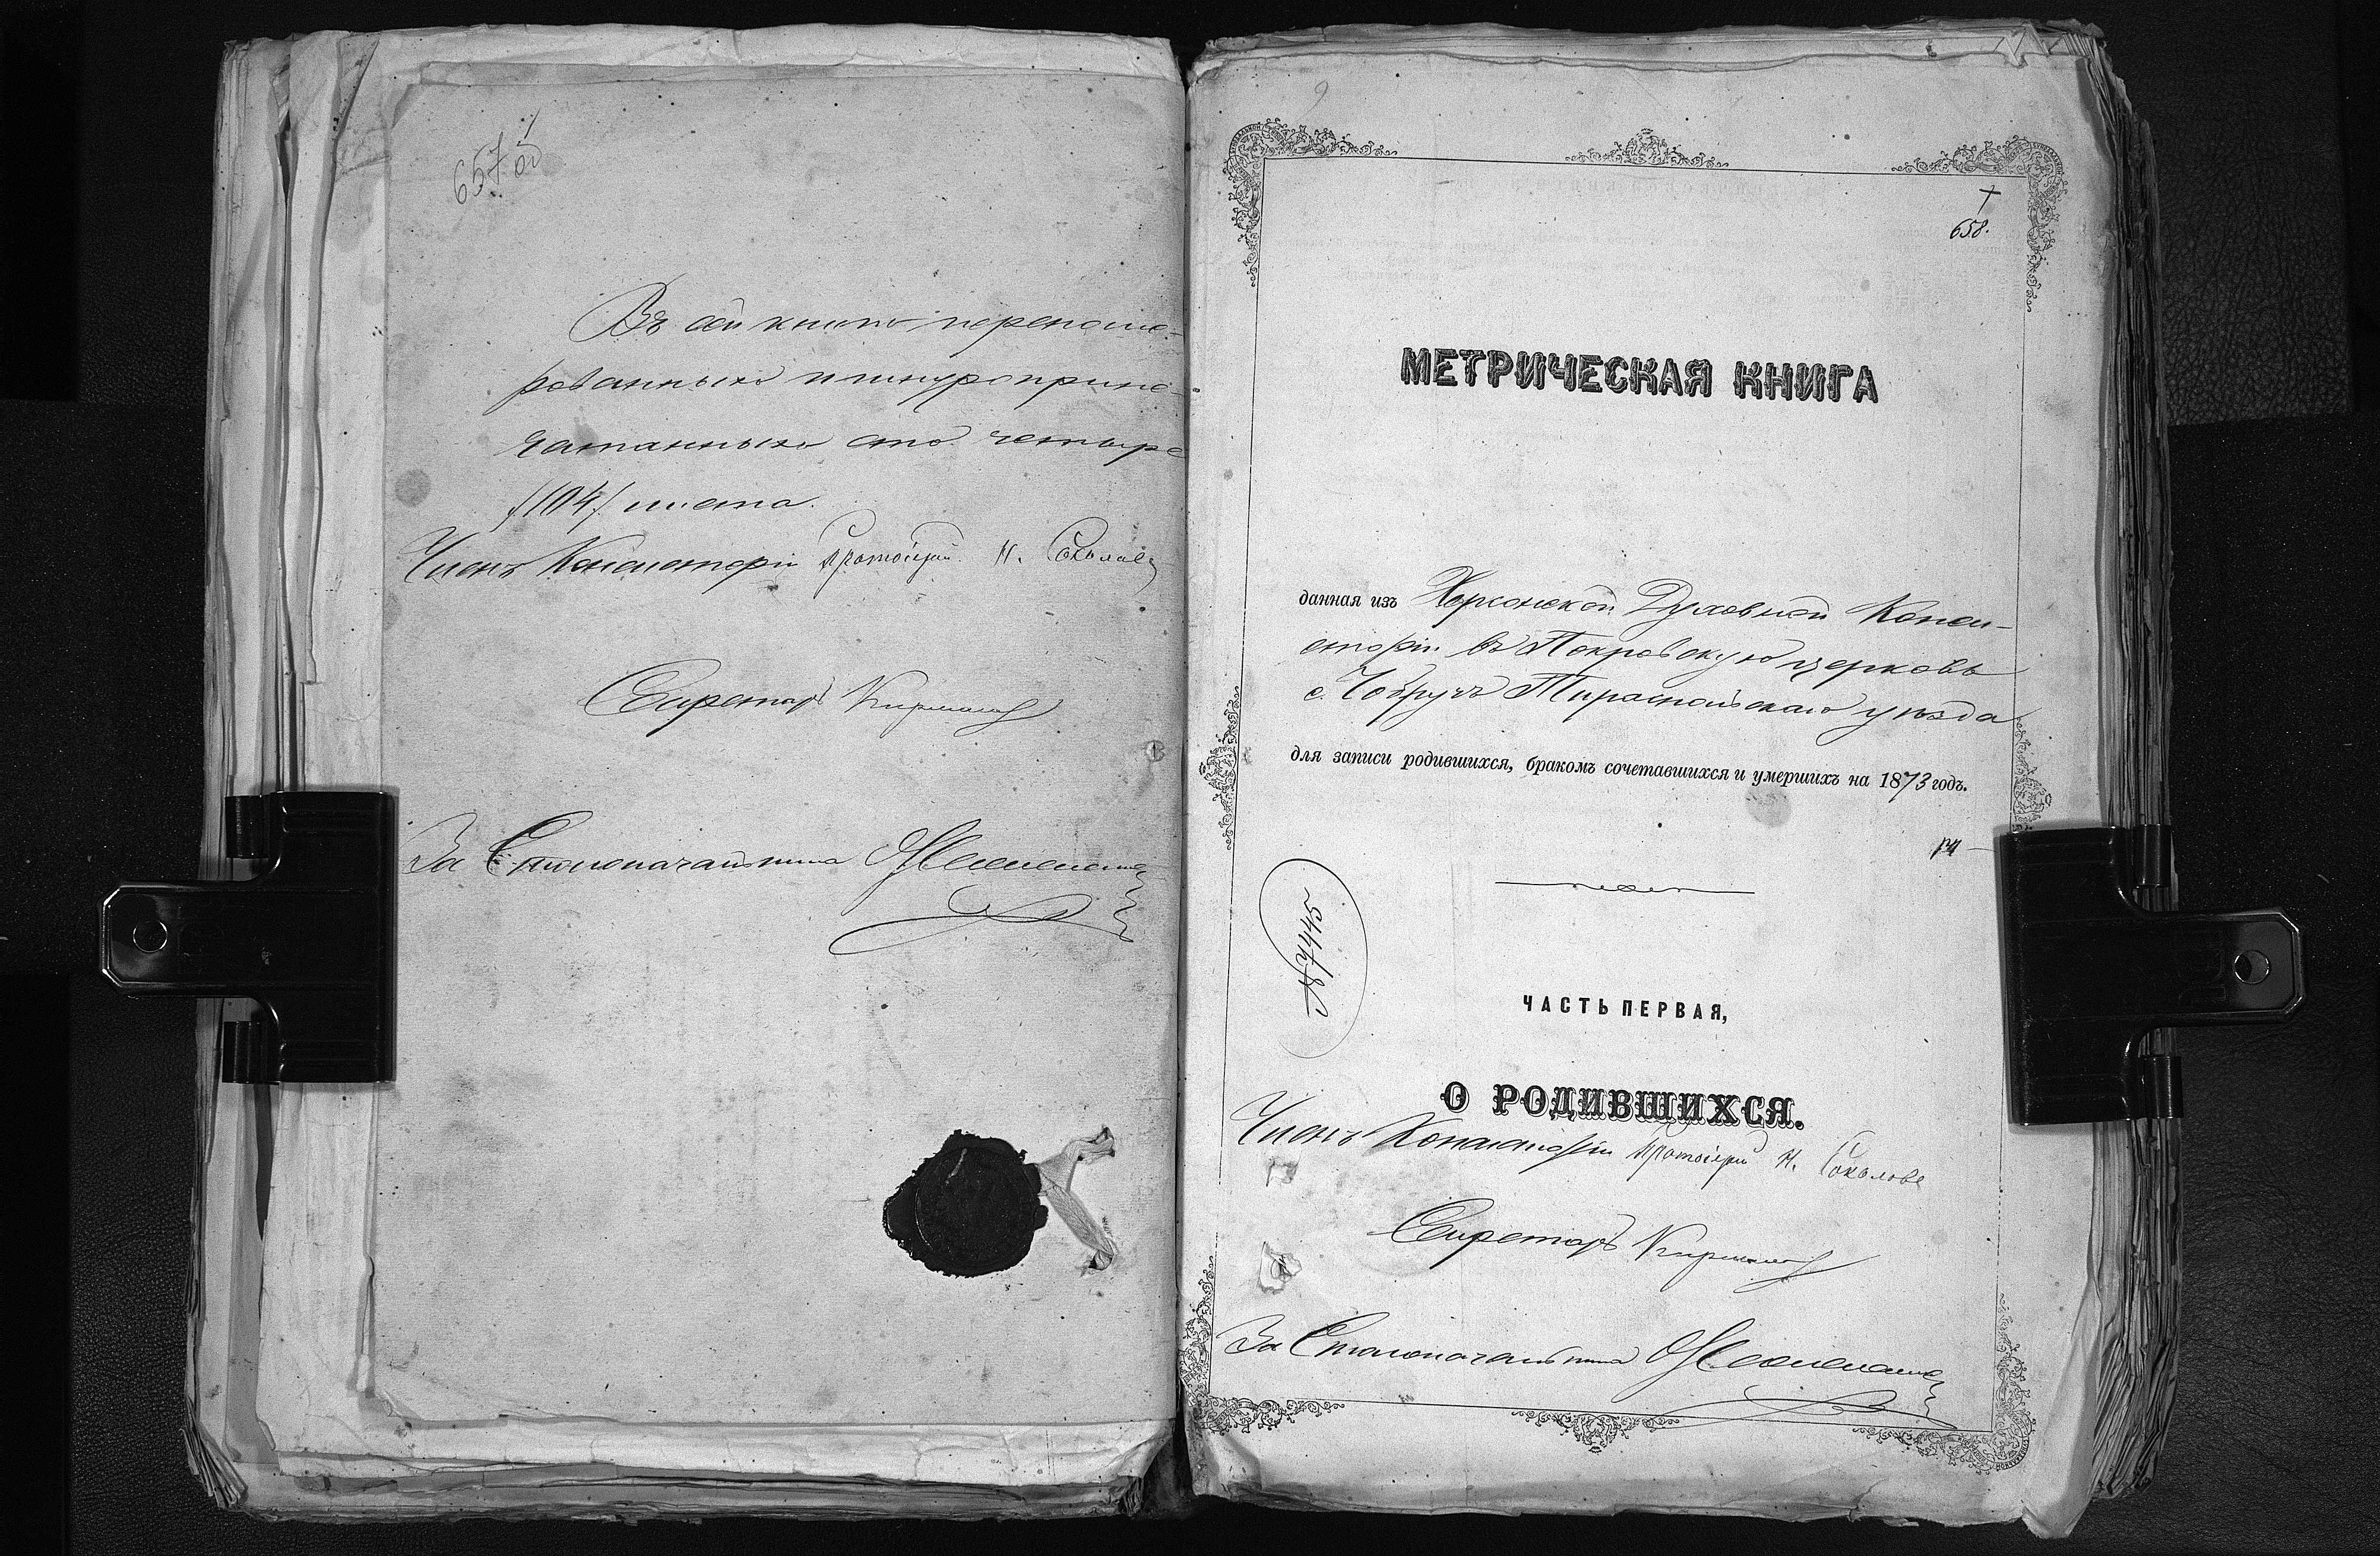 657 об
Въ сей книгѣ перенуме-
рованныхъ и шнуроприпе-
чатанныхъ сто четыре
/104/ листа.
Членъ Консисторіи Протоіерей Н. Соколовъ
Секретарь
За Столоначальника
9
658.
МЕТРИЧЕСКАЯ КНИГА
данная изъ Херсонской Духовной Конси-
сторіи въ Покровскую церковь
с. Чобручъ Тираспольскаго уѣзда
для записи родившихся, бракомъ сочетавшихся и умершихъ на 1873 годъ.
№ 7445
ЧАСТЬ ПЕРВАЯ,
О РОДИВШИХСЯ.
Членъ Консисторіи Протоіерей Н. Соколовъ
Секретарь
За Столоначальника